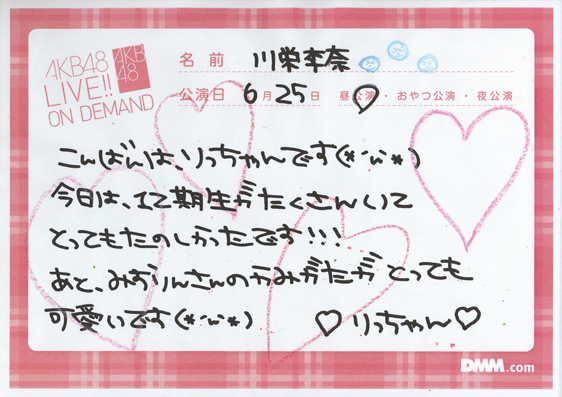 AKB48
LIVE!!
ON DEMAND
AKB
48
名前 川栄李奈
公演日 6月25日 昼公演・おやつ公演・夜公演
こんばんは、りっちゃんです(*´ω`*)
今日は、12期生がたくさんいて
とってもたのしかったです!!!
あと、みずりんさんのかみがたがとっても
可愛いです(*´ω`*) ♡りっちゃん♡
DMM.com